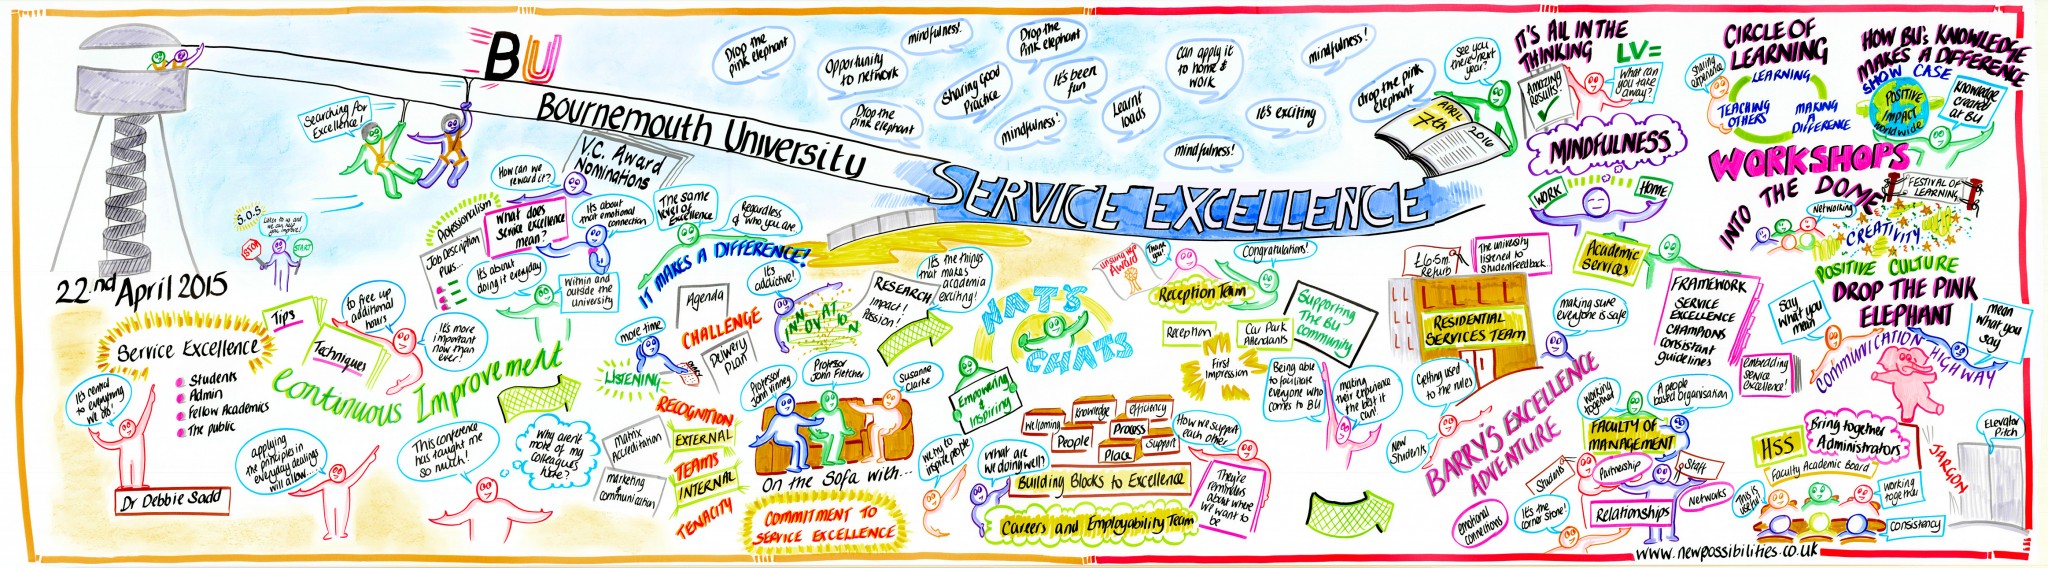 BU
Bournemouth University
SERVICE EXCELLENCE
22nd April 2015
Searching for
Excellence!
S.O.S
Listen to us and
we can help
you improve!
STOP
START
Service Excellence
Students
Admin
Fellow Academics
The public
It's central
to everything
we do!
Dr Debbie Sadd
applying
the principles in
everyday dealings
will allow...
Tips
Techniques
to free up
additional
hours
It's more
important
now than
ever!
Continuous Improvement
This conference
has taught me
so much!
Why aren't
more of my
colleagues
here?
V.C. Award
Nominations
How can we
reward it?
Professionalism
Job Description
Plus...
What does
service excellence
mean?
It's about
that emotional
connection
It's about
doing it everyday
Within and
outside the
university
The same
level of
excellence
Regardless
of who you are
IT MAKES A DIFFERENCE!
Agenda
CHALLENGE
DELIVERY
PLAN
more time
LISTENING
It's
addictive!
INNOVATION
RESEARCH
Impact!
Passion!
It's the things
that makes
academia
exciting!
RECOGNITION
EXTERNAL
TEAMS
INTERNAL
TENACITY
Matrix
Accreditation
marketing
&
communication
Professor
John Vinney
Professor
John Fletcher
Susanne
Clarke
On the Sofa with...
COMMITMENT TO
SERVICE EXCELLENCE
Drop the
pink elephant
Opportunity
to network
mindfulness!
Drop the
pink elephant
Sharing Good
Practice
Drop the
Pink elephant
It's been
fun
mindfulness!
Learnt
loads
Can apply it
to home &
work
mindfulness!
It's exciting
mindfulness!
drop the pink
elephant
See you
there next
year?
APRIL
7th
2016
NAT'S
CHATS
Empowering
&
Inspiring
Unsung Hero
Award
Thank
you
Congratulations!
Reception Team
Reception
Car Park
Attendants
First
Impression
Supporting
The BU
Community
welcoming
Knowledge
efficiency
People
Process
Place
Support
We try to
inspire people
What are
we doing well?
Building Blocks to Excellence
Careers and Employability Team
How we support
each other
They're
reminders
about where
we want to
be
Being able
to facilitate
everyone who
comes to BU
making
their experience
the best it
can!
£6.5m
Refurb
The university
listened to
student feedback.
RESIDENTIAL
SERVICES TEAM
Getting used
to the rules
New
Students
BARRY'S EXCELLENCE
ADVENTURE
making sure
everyone is safe
Academic
Services
FRAMEWORK
SERVICE
EXCELLENCE
CHAMPIONS
consistant
guidelines
embedding
service
excellence!
working
together
A people
based organisation
FACULTY OF
MANAGEMENT
Students
Partnership
Staff
Networks
Relationships
It's the
corner stone!
emotional
connections
IT'S ALL IN THE
THINKING
LV=
Amazing
Results!
What can
you take
away?
MINDFULNESS
WORK
HOME
CIRCLE OF
LEARNING
sharing
experience
LEARNING
TEACHING
OTHERS
MAKING
A
DIFFERENCE
HOW BU's KNOWLEDGE
MAKES A DIFFERENCE
SHOW CASE
POSITIVE
impact
worldwide
Knowledge
created
at BU
WORKSHOPS
INTO THE DOME
FESTIVAL OF
LEARNING
Networking
CREATIVITY
POSITIVE CULTURE
DROP THE PINK
ELEPHANT
Say
what you
mean
mean
what you
say
COMMUNICATION HIGHWAY
HSS
Bring together
Administrators
Faculty Academic Board
This is
useful!
working
together
consistency
JARGON
Elevator
Pitch
www.newpossibilities.co.uk